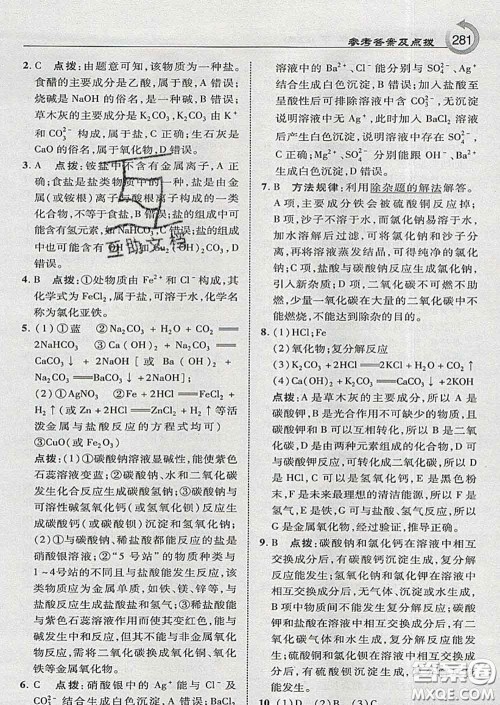 参考答案及点拨
281
2. C 点拨:由题意可知,该物质为一种盐。
食醋的主要成分是乙酸,属于酸,A 错误;
烧碱是 NaOH 的俗名,是一种碱,B 错误;
草木灰的主要成分是 K₂CO₃,K₂CO₃ 由 K⁺
和 CO₃²⁻ 构成,属于盐,C 正确;生石灰是
CaO 的俗名,属于氧化物,D 错误。
3. A 点拨:铵盐中不含有金属离子,A 正
确;食盐是盐类物质中的一种,盐是由金
属(或铵根)离子与酸根离子构成的一类
化合物,不等于食盐,B 错误;盐的组成中可
能含有氢元素,如 NaHCO₃,C 错误;盐的组
成中可能含有氧元素,如 CO₃,D
错误。
4. B 点拨:①处物质由 Fe²⁺ 和 Cl⁻ 构成,其
化学式为 FeCl₂,属于盐,可溶于水,名称为
氯化亚铁。
5. (1)①蓝 ②Na₂CO₃ + H₂O + CO₂ ══
2NaHCO₃ ③Na₂CO₃ + Ca(OH)₂ ══
CaCO₃↓ + 2NaOH [ 或 Na₂CO₃ +
Ba(OH)₂ ══ BaCO₃↓ + 2NaOH ]
(2)①AgNO₃ ②Fe + 2HCl ══ FeCl₂ +
H₂↑(或 Zn + 2HCl ══ ZnCl₂ + H₂↑等活
泼金属与盐酸反应的方程式均可)
③CuO(或 Fe₂O₃)
点拨:(1)①碳酸钠溶液显碱性,能使紫色
石蕊溶液变蓝;②碳酸钠、水和二氧化碳
发生化合反应生成碳酸氢钠;③碳酸钠与
可溶性碱氢氧化钙(或氢氧化钡)反应生
成碳酸钙(或碳酸钡)沉淀和氢氧化钠;
(2)①能与碳酸钠、稀盐酸都能反应的盐是
硝酸银溶液;②“5 号站”的物质种类与
1~4号站的不同且与盐酸能发生反应,该
类物质应为金属单质,如铁、镁、锌等,与
盐酸反应生成盐酸盐和氢气;③稀盐酸能
与紫色石蕊溶液、金属氧化物、氢氧化钠
和碳酸钠发生反应而不与非金属氧化物
反应,需将二氧化碳换成氧化铜、氧化铁
等金属氧化物。
6. C 点拨:硝酸银中的 Ag⁺ 能与 Cl⁻ 及
溶液中的 Ba²⁺、Cl⁻ 能分别与 SO₄²⁻、Ag⁺
结合生成白色沉淀,B 错误;加入盐酸至
呈酸性后可排除溶液中含 CO₃²⁻,无沉淀
说明溶液中无 Ag⁺,此时加入氯化钡溶液
后产生白色沉淀,说明溶液中含有 SO₄²⁻,
C 正确;Mg²⁺、SO₄²⁻ 能分别跟 OH⁻、Ba²⁺
结合生成白色沉淀,D 错误。
7. B 方法规律:利用除杂题的解法解答。
A 项,主要成分铁会被硫酸铜反应掉;
B 项,碳酸钙不溶于水,而氯化钠易溶于水,
加水溶解、过滤可除去不溶于水的碳酸
钙,再将溶液蒸发结晶,可得到氯化钠;
C 项,盐酸与碳酸钠反应生成氯化钠,引
入新杂质;D 项,二氧化碳不可燃也不助
燃,且大量的二氧化碳中有少量的一氧化
碳,不能被点燃,不能达到除杂的目的。
8. (1)HCl;Fe
(2)氧化物;复分解反应
(3)K₂CO₃ + 2HCl ══ 2KCl + H₂O + CO₂↑
(4)Ca(OH)₂ + K₂CO₃ ══ CaCO₃↓ + 2KOH
点拨:A 是草木灰的主要成分,所以 A 是
碳酸钾,B 是光合作用不可缺少的物质,且
碳酸钾和 B 可以相互转化,所以 B 是二氧
化碳,D 是由两种元素组成的化合物,D 可
以转化成二氧化碳,碳酸钾和 D 可以发生
反应,所以 D 是盐酸,C 是氯化钾,E 是
HCl,E 和氯化氢会发生反应,E 是单质,
F 是未来最理想的清洁能源,所以 F 是氢
气,E 是活泼金属,E 是前 20 号元素之外的
元素,所以 E 是铁,盐酸和 G 会发生反应,
G 是金属氧化物,经过验证,推导正确。
9. B 点拨:碳酸钠和氢氧化钙在溶液中相互
交换成分后,有碳酸钙沉淀生成,能发生
复分解反应;氢氧化钠和氯化钾在溶液中
相互交换成分后,没有沉淀、气体或水生
成,不能发生复分解反应;硝酸银和盐酸
在溶液中相互交换成分后,有氯化银沉淀
生成,能发生复分解反应;硫酸铜和氢氧
化钡在溶液中相互交换成分后,有硫酸钡
和氢氧化铜沉淀生成,能发生复分解反应。
10. (1)D (2)B (3)C
互助文档
答案圈
MXQE.COM